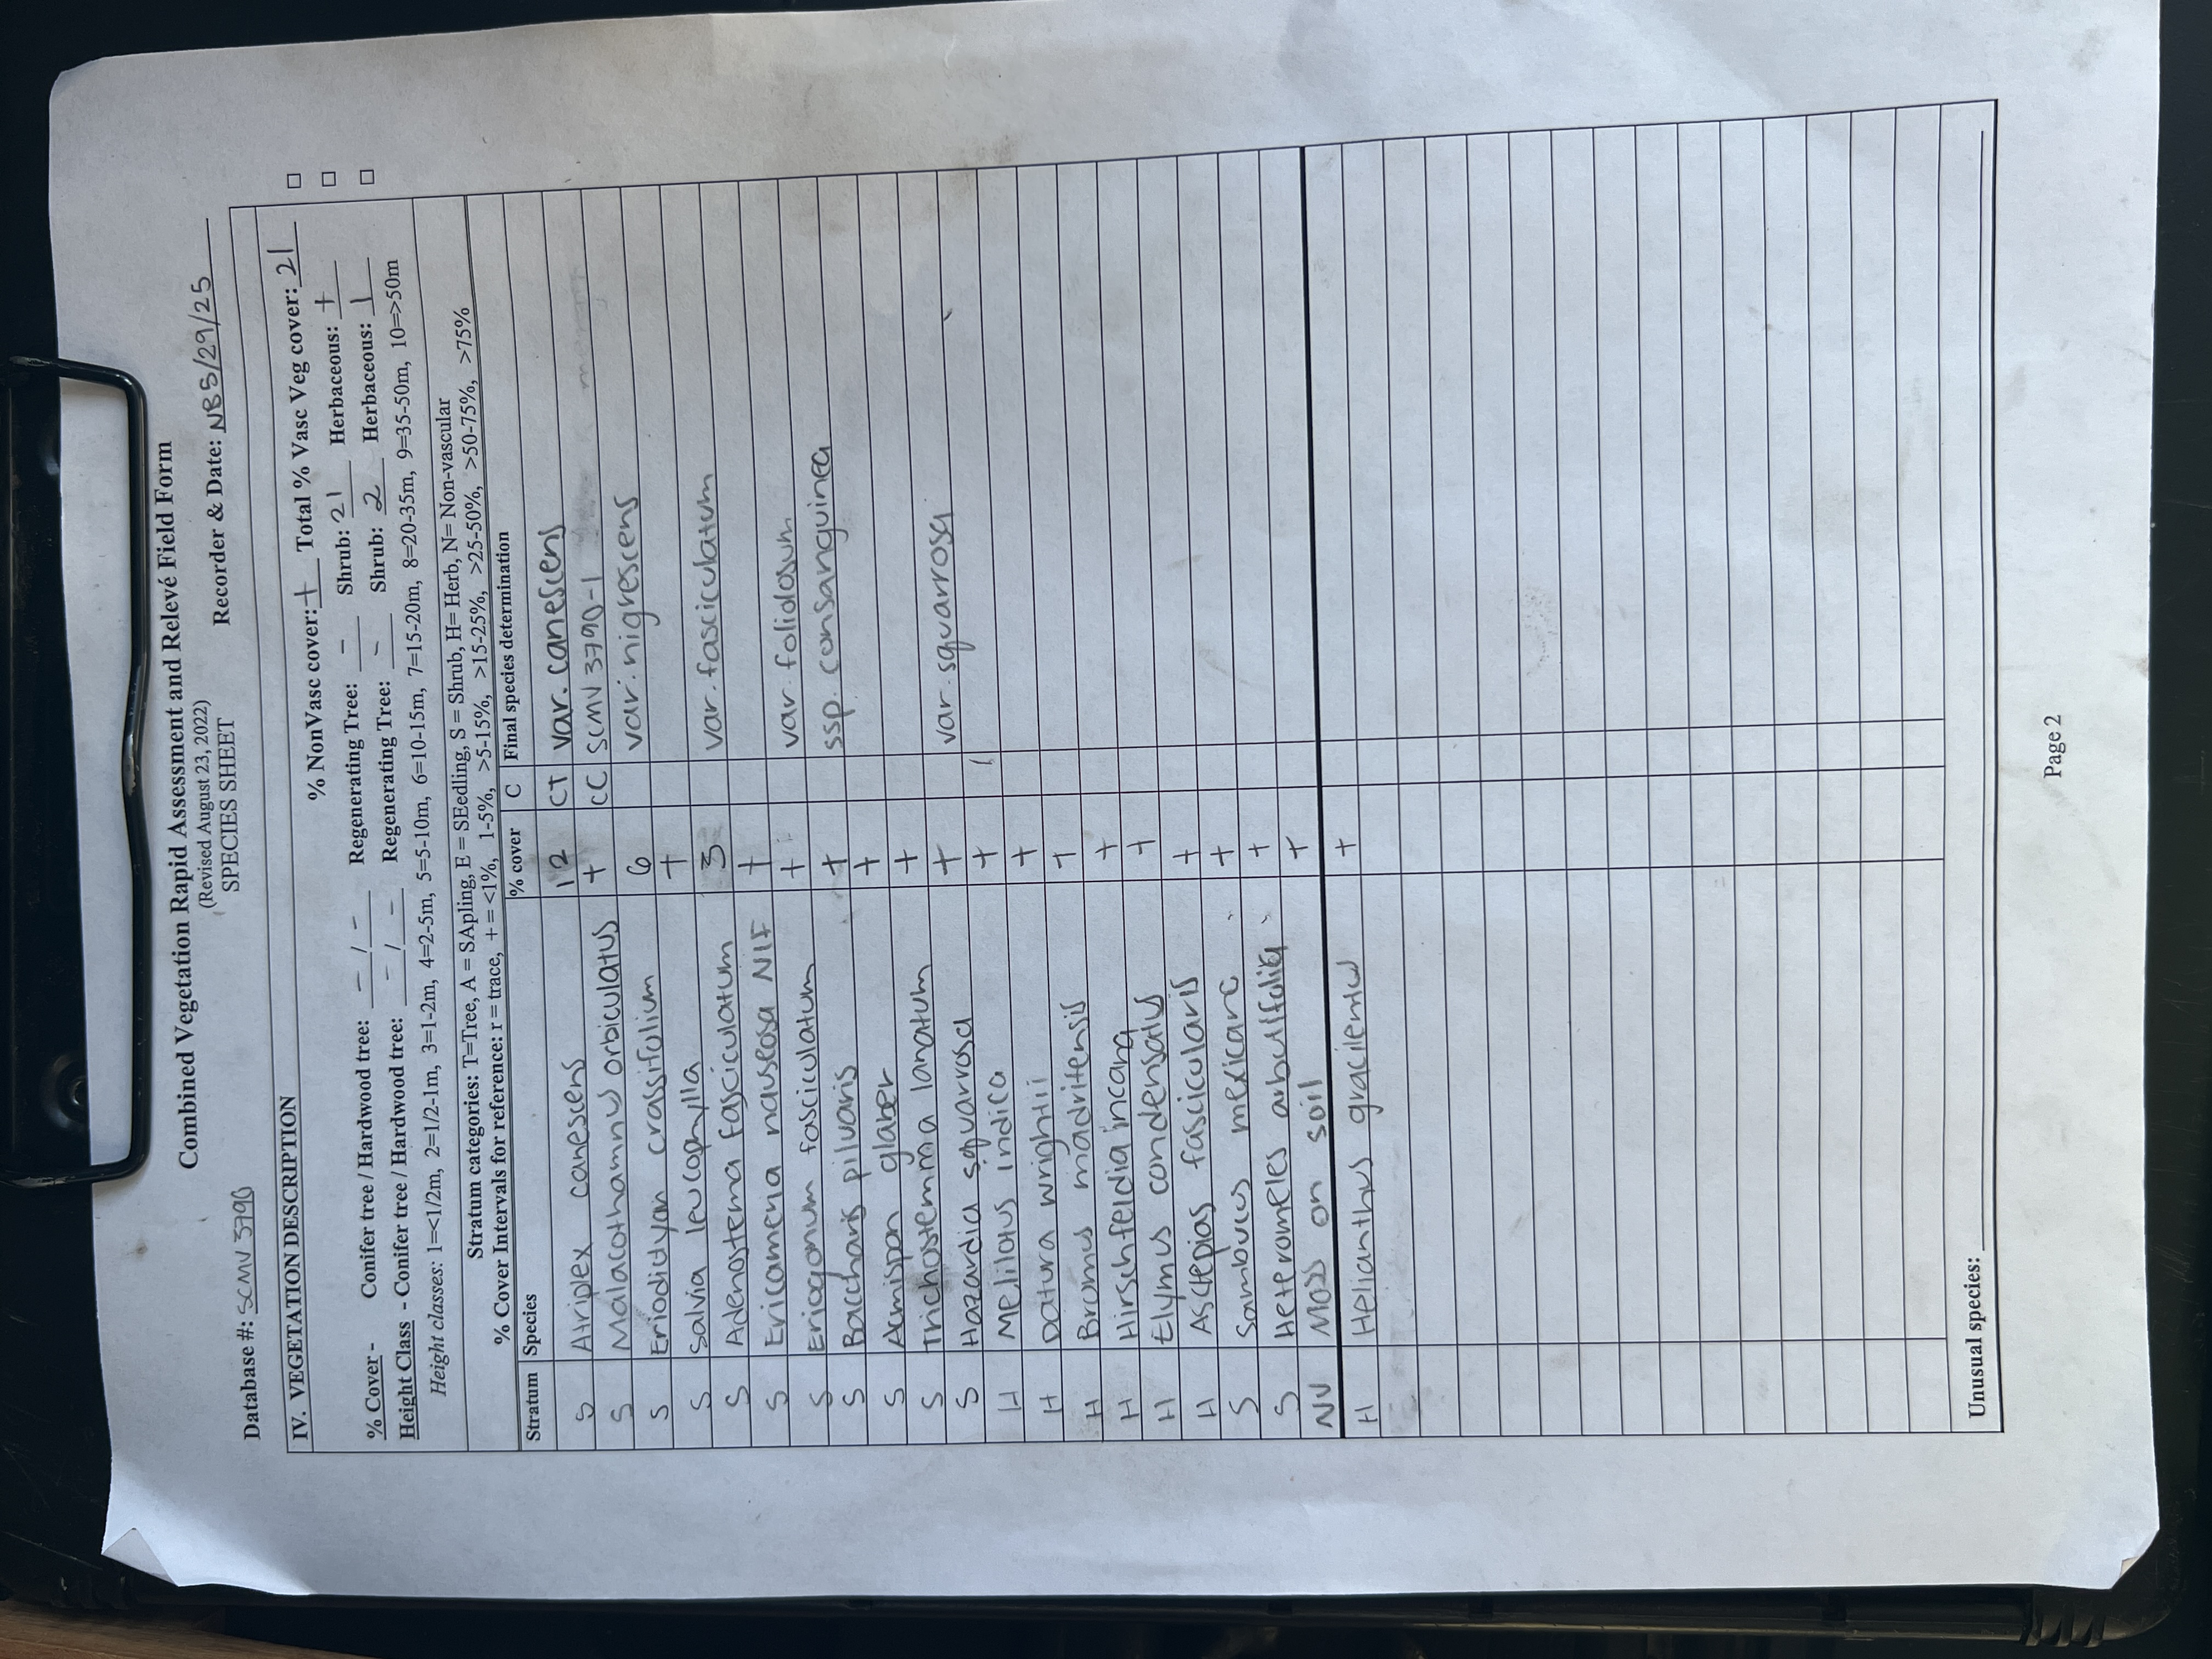 Combined Vegetation Rapid Assessment and Relevé Field Form
(Revised August 23, 2022)
SPECIES SHEET
Database #: SCMV 3790 Recorder & Date: NB 5/29/25
IV. VEGETATION DESCRIPTION
% NonVasc cover: + Total % Vasc Veg cover: 21 □
% Cover - Conifer tree / Hardwood tree: - / - Regenerating Tree: - Shrub: 21 Herbaceous: + □
Height Class - Conifer tree / Hardwood tree: - / - Regenerating Tree: - Shrub: 2 Herbaceous: 1 □
Height classes: 1=<1/2m, 2=1/2-1m, 3=1-2m, 4=2-5m, 5=5-10m, 6=10-15m, 7=15-20m, 8=20-35m, 9=35-50m, 10=>50m
Stratum categories: T=Tree, A = SApling, E = SEedling, S = Shrub, H= Herb, N= Non-vascular
% Cover Intervals for reference: r = trace, + = <1%, 1-5%, >5-15%, >15-25%, >25-50%, >50-75%, >75%
Stratum Species % cover C Final species determination
S Atriplex canescens 12 CT var. canescens
S Malacothamnus orbiculatus + CC SCMV 3790-1
S Eriodictyon crassifolium 6 var. nigrescens
S Salvia leucophylla +
S Adenostema fasciculatum 3 var. fasciculatum
S Ericamenia nauseosa NIF +
S Eriogonum fasciculatum + var. foliolosum
S Baccharis piluaris + ssp. consanguinea
S Acmispon glaber +
S Trichostemma lanatum +
S Hazardia squarrosa + var. squarrosa
H Melilotus indica +
H Datura wrightii +
H Bromus madritensis +
H Hirschfeldia incana +
H Elymus condensatus +
H Asclepias fascicularis +
S Sambucus mexicana +
S Heteromeles arbutifolia +
NV Moss on soil +
H Helianthus gracilentus +
Unusual species:
Page 2